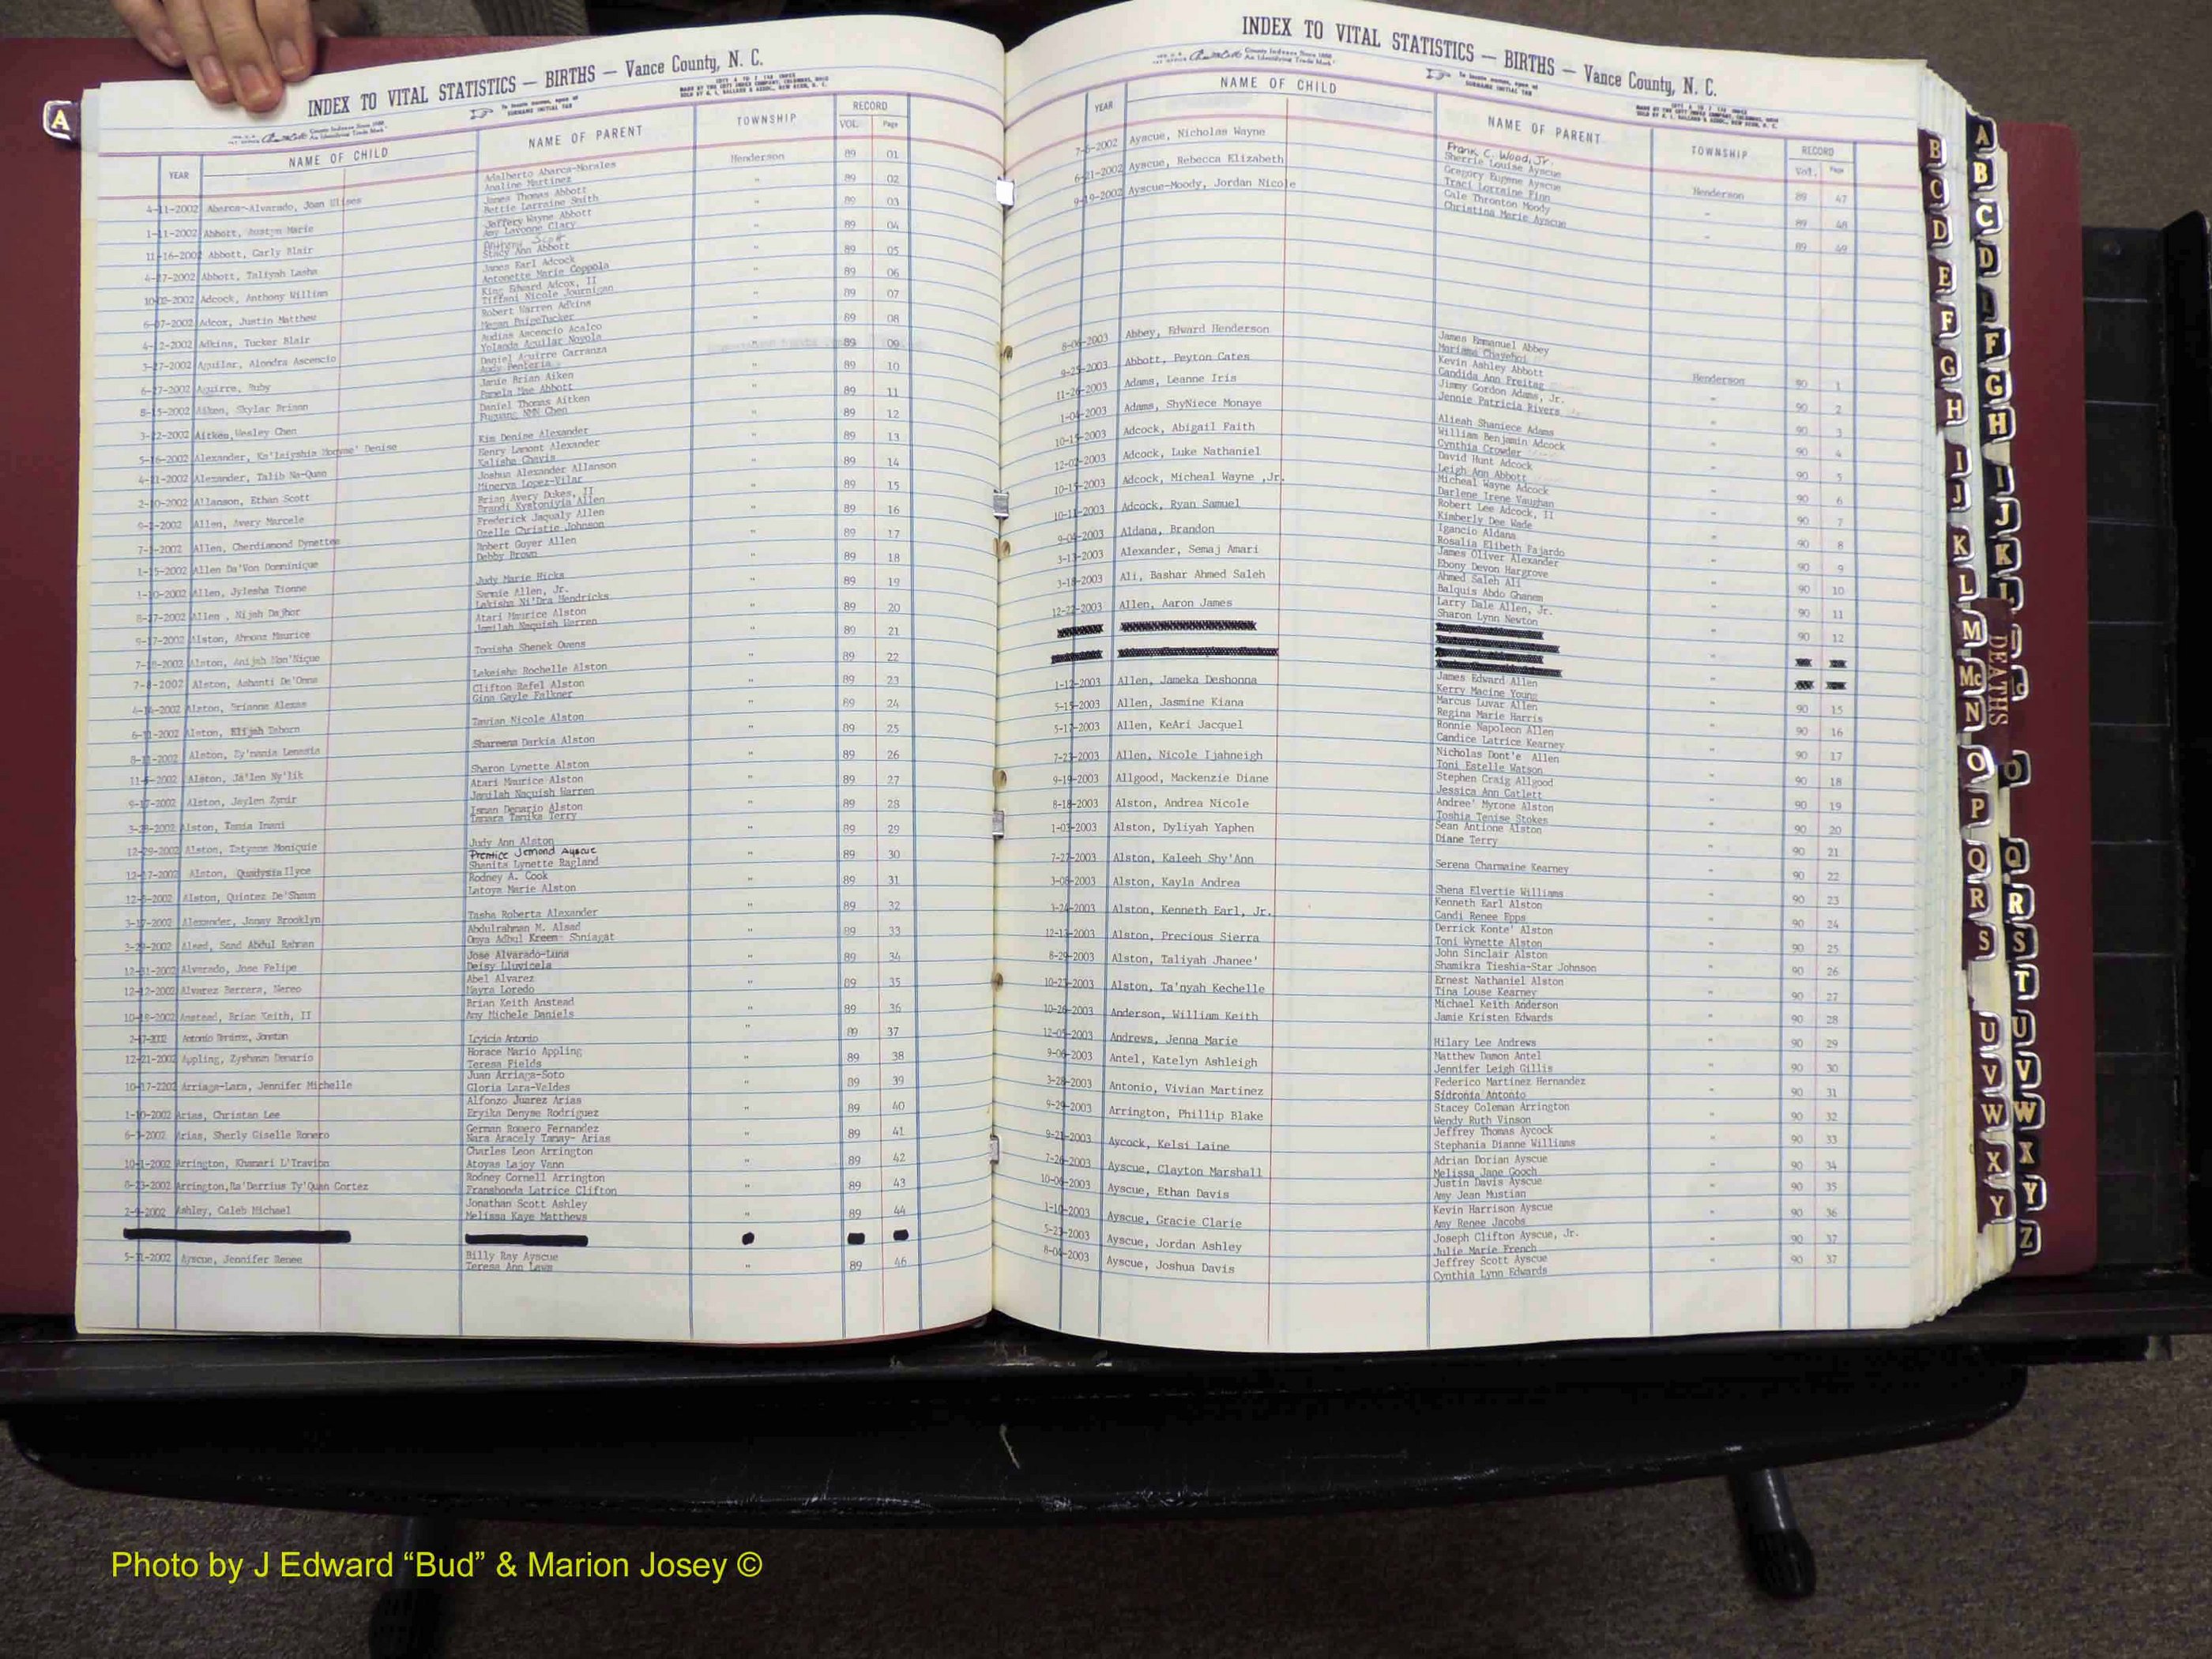 INDEX TO VITAL STATISTICS — BIRTHS — Vance County, N. C.
YEAR NAME OF CHILD NAME OF PARENT TOWNSHIP RECORD VOL. Page
4-11-2002 Abarca-Alvarado, Joan Ulises Adalberto Abarca-Morales Henderson 89 01
Analine Martinez
1-11-2002 Abbott, Austyn Marie James Thomas Abbott " 89 02
Bettie Lorraine Smith
11-16-2002 Abbott, Carly Blair Jeffery Wayne Abbott " 89 03
Amy Lavonne Clary
4-27-2002 Abbott, Taliyah Lasha Anthony Scott " 89 04
Stacy Ann Abbott
Adcock, Anthony William James Earl Adcock " 89 05
Antonette Marie Coppola
6-07-2002 Adcox, Justin Matthew King Edward Adcox, II " 89 06
Tiffani Nicole Journigan
Adkins, Tucker Blair Robert Warren Adkins " 89 07
Megan PaigeTucker
3-27-2002 Aguilar, Alondra Ascencio Audias Ascencio Acalco " 89 08
Yolanda Aguilar Noyola
6-27-2002 Aguirre, Ruby Daniel Aguirre Carranza " 89 09
8-15-2002 Aiken, Skylar Brison Janie Brian Aiken " 89 10
Pamela Mae Abbott
3-22-2002 Aitken, Wesley Chen Daniel Thomas Aitken " 89 11
Fuguang NMN Chen
5-16-2002 Alexander, Ka'Leiyshia Denise Kim Denise Alexander " 89 12
4-11-2002 Alexander, Talib Na-Quan Henry Lamont Alexander " 89 13
Kalisha Chavis
2-10-2002 Allanson, Ethan Scott Joshua Alexander Allanson " 89 14
Minerva Lopez-Vilar
Allen, Avery Marcele Brian Avery Dukes, II " 89 15
Brandi Kystoniyia Allen
Allen, Cherdiamond Dynettee Frederick Jaqualy Allen " 89 16
Ozelle Christie Johnson
1-15-2002 Allen Da'Von Dominique Robert Guyer Allen " 89 17
Debby Brown
1-10-2002 Allen, Jylesha Tionne Judy Marie Hicks " 89 18
8-27-2002 Allen , Nijah Dajhor Sammie Allen, Jr. " 89 19
Lakisha Ni'Dra Hendricks
9-17-2002 Alston, Ahmonz Maurice Atari Maurice Alston " 89 20
Jamilah Naquish Warren
Alston, Anijah Mon'Nique Tomisha Shenek Owens " 89 21
7-8-2002 Alston, Ashanti De'Onna Lakeisha Rochelle Alston " 89 22
4-16-2002 Alston, Brianne Alexas Clifton Rafel Alston " 89 23
Gina Gayle Falkner
6-11-2002 Alston, Elijah Tahorn Tavian Nicole Alston " 89 24
Alston, Ey'nania Lenasia Shareena Darkia Alston " 89 25
Alston, Ja'len Ny'lik Sharon Lynette Alston " 89 26
9-17-2002 Alston, Jaylen Zymir Atari Maurice Alston " 89 27
Jamilah Naquish Warren
Alston, Tamia Imani Isman Demario Alston " 89 28
Tamara Tamika Terry
12-29-2002 Alston, Tatyanna Moniquie Judy Ann Alston " 89 29
12-17-2002 Alston, Quadysia Ilyce Prentice Jemond Ayscue " 89 30
Shanita Lynette Ragland
Alston, Quintez De'Shaun Rodney A. Cook " 89 31
Latoya Marie Alston
3-17-2002 Alexander, Jonay Brooklyn Tasha Roberta Alexander " 89 32
Alsad, Saad Abdul Rahman Abdulrahman M. Alsad " 89 33
Omya Adhul Kreem- Shniagat
12-31-2002 Alvarado, Jose Felipe Jose Alvarado-Luna " 89 34
Deisy Lluvicela
12-12-2002 Alvarez Berrera, Nereo Abel Alvarez " 89 35
Mayra Loredo
Anstead, Brian Keith, II Brian Keith Anstead " 89 36
Amy Michele Daniels
2-17-2002 Antonio Ramirez, Jonatan Leyicia Antonio " 89 37
12-21-2002 Appling, Zyshawn Demario Horace Mario Appling " 89 38
Teresa Fields
10-17-2202 Arriaga-Lara, Jennifer Michelle Juan Arriaga-Soto " 89 39
Gloria Lara-Valdes
1-10-2002 Arias, Christan Lee Alfonzo Juarez Arias " 89 40
Eryika Denyse Rodriguez
Arias, Sherly Giselle Romero German Romero Fernandez " 89 41
Nara Aracely Tamay- Arias
10-1-2002 Arrington, Khamari L'Travion Charles Leon Arrington " 89 42
Atoyas Lajoy Venn
8-23-2002 Arrington,Ra'Darrius Ty'Quan Cortez Rodney Cornell Arrington " 89 43
Franshonda Latrice Clifton
Ashley, Caleb Michael Jonathan Scott Ashley " 89 44
Melissa Kaye Matthews
5-31-2002 Ayscue, Jennifer Renee Billy Ray Ayscue " 89 46
Teresa Ann Laws
INDEX TO VITAL STATISTICS — BIRTHS — Vance County, N. C.
YEAR NAME OF CHILD NAME OF PARENT TOWNSHIP RECORD Vol. Page
7-6-2002 Ayscue, Nicholas Wayne Frank C. Wood, Jr. Henderson 89 47
Sherrie Louise Ayscue
6-21-2002 Ayscue, Rebecca Elizabeth Gregory Eugene Ayscue " 89 48
Traci Lorraine Finn
9-19-2002 Ayscue-Moody, Jordan Nicole Gale Thronton Moody " 89 49
Christina Marie Ayscue
8-06-2003 Abbey, Edward Henderson James Emmanuel Abbey Henderson 90 1
Mariama Chayehoi
9-25-2003 Abbott, Peyton Cates Kevin Ashley Abbott " 90 2
Candida Ann Freitag
11-26-2003 Adams, Leanne Iris Jimmy Gordon Adams, Jr. " 90 3
Jennie Patricia Rivers
1-04-2003 Adams, ShyNiece Monaye Alieah Shaniece Adams " 90 4
10-15-2003 Adcock, Abigail Faith William Benjamin Adcock " 90 5
Cynthia Crowder
12-02-2003 Adcock, Luke Nathaniel David Hunt Adcock " 90 6
Leigh Ann Abbott
10-15-2003 Adcock, Micheal Wayne ,Jr. Micheal Wayne Adcock " 90 7
Darlene Irene Vaughan
10-11-2003 Adcock, Ryan Samuel Robert Lee Adcock, II " 90 8
Kimberly Dee Wade
9-04-2003 Aldana, Brandon Igancio Aldana " 90 9
Rosalia Elibeth Fajardo
3-13-2003 Alexander, Semaj Amari James Oliver Alexander " 90 10
Ebony Devon Hargrove
3-18-2003 Ali, Bashar Ahmed Saleh Ahmed Saleh Ali " 90 11
Balquis Abdo Ghanem
12-22-2003 Allen, Aaron James Larry Dale Allen, Jr. " 90 12
Sharon Lynn Newton
1-12-2003 Allen, Jameka Deshonna James Edward Allen " 90 15
Kerry Macine Young
5-15-2003 Allen, Jasmine Kiana Marcus Luvar Allen " 90 16
Regina Marie Harris
5-17-2003 Allen, KeAri Jacquel Ronnie Napoleon Allen " 90 17
Candice Latrice Kearney
7-23-2003 Allen, Nicole Ijahneigh Nicholas Dont'e Allen " 90 18
Toni Estelle Watson
9-19-2003 Allgood, Mackenzie Diane Stephen Craig Allgood " 90 19
Jessica Ann Catlett
8-18-2003 Alston, Andrea Nicole Andree' Myrone Alston " 90 20
Toshia Tenise Stokes
1-03-2003 Alston, Dyliyah Yaphen Sean Antione Alston " 90 21
Diane Terry
7-27-2003 Alston, Kaleeh Shy'Ann Serena Charmaine Kearney " 90 22
3-08-2003 Alston, Kayla Andrea Shena Elvertie Williams " 90 23
3-24-2003 Alston, Kenneth Earl, Jr. Kenneth Earl Alston " 90 24
Candi Renee Epps
12-12-2003 Alston, Precious Sierra Derrick Konte' Alston " 90 25
Toni Wynette Alston
8-29-2003 Alston, Taliyah Jhanee' John Sinclair Alston " 90 26
Shamikra Tieshia-Star Johnson
10-23-2003 Alston, Ta'nyah Kechelle Ernest Nathaniel Alston " 90 27
Tina Louse Kearney
10-26-2003 Anderson, William Keith Michael Keith Anderson " 90 28
Jamie Kristen Edwards
12-05-2003 Andrews, Jenna Marie Hilary Lee Andrews " 90 29
9-06-2003 Antel, Katelyn Ashleigh Matthew Damon Antel " 90 30
Jennifer Leigh Gillis
3-28-2003 Antonio, Vivian Martinez Federico Martinez Hernandez " 90 31
Sidronia Antonio
9-29-2003 Arrington, Phillip Blake Stacey Coleman Arrington " 90 32
Wendy Ruth Vinson
9-21-2003 Aycock, Kelsi Laine Jeffrey Thomas Aycock " 90 33
Stephania Dianne Williams
7-26-2003 Ayscue, Clayton Marshall Adrian Dorian Ayscue " 90 34
Melissa Jane Gooch
10-06-2003 Ayscue, Ethan Davis Justin Davis Ayscue " 90 35
Amy Jean Mustian
1-10-2003 Ayscue, Gracie Clarie Kevin Harrison Ayscue " 90 36
Amy Renee Jacobs
5-23-2003 Ayscue, Jordan Ashley Joseph Clifton Ayscue, Jr. " 90 37
Julie Marie French
8-04-2003 Ayscue, Joshua Davis Jeffrey Scott Ayscue " 90 37
Cynthia Lynn Edwards
A
B
C
D
E
F
G
H
I
J
K
L
M
Mc
N
O
P
Q
R
S
U
V
W
X
Y
A
B
C
D
F
G
H
I
J
K
L
DEATHS
O
Q
R
S
T
U
V
W
X
Y
Z
Photo by J Edward “Bud” & Marion Josey ©